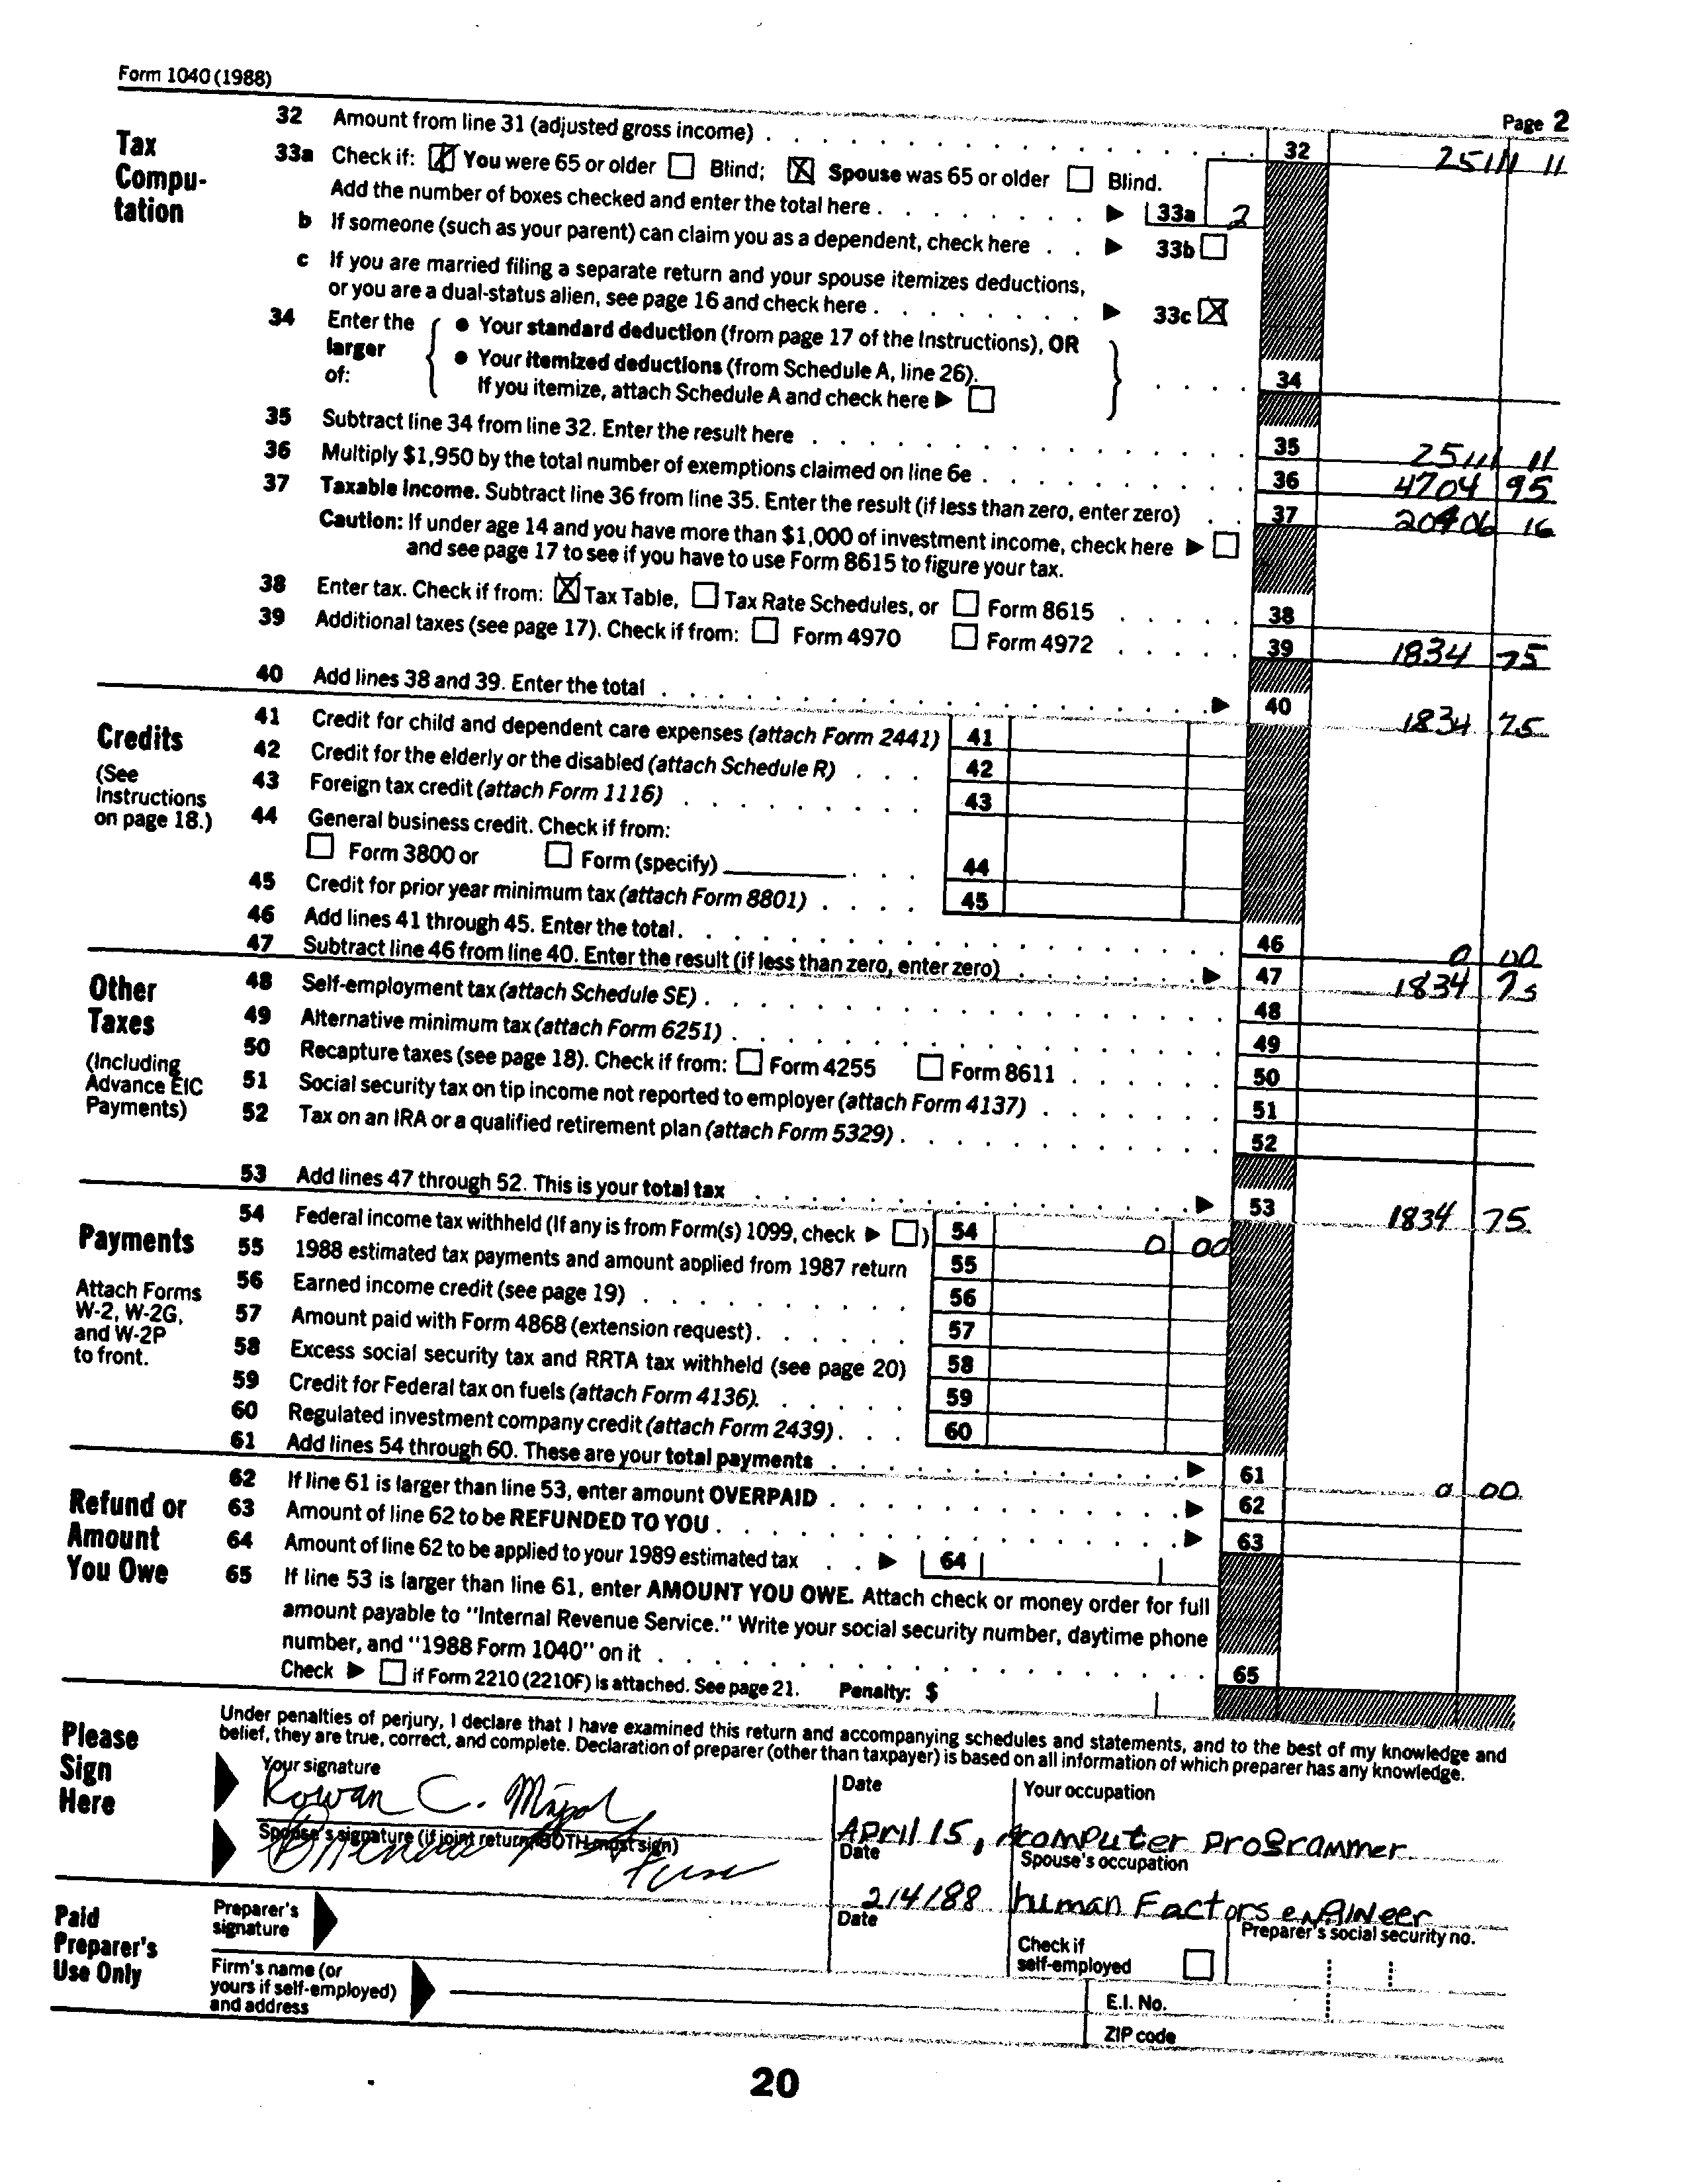 Form 1040 (1988)
Page 2
Tax Compu-tation
32 Amount from line 31 (adjusted gross income) . . . 32 25111 11
33a Check if: ☒ You were 65 or older ☐ Blind; ☒ Spouse was 65 or older ☐ Blind.
Add the number of boxes checked and enter the total here . . . ▶ 33a 2
b If someone (such as your parent) can claim you as a dependent, check here . . ▶ 33b ☐
c If you are married filing a separate return and your spouse itemizes deductions,
or you are a dual-status alien, see page 16 and check here . . . ▶ 33c ☒
34 Enter the larger of: { ● Your standard deduction (from page 17 of the Instructions), OR
● Your itemized deductions (from Schedule A, line 26).
If you itemize, attach Schedule A and check here ▶ ☐ } . . . . 34
35 Subtract line 34 from line 32. Enter the result here . . . 35 25111 11
36 Multiply $1,950 by the total number of exemptions claimed on line 6e . . . 36 4704 95
37 Taxable income. Subtract line 36 from line 35. Enter the result (if less than zero, enter zero) . . 37 20406 16
Caution: If under age 14 and you have more than $1,000 of investment income, check here ▶ ☐
and see page 17 to see if you have to use Form 8615 to figure your tax.
38 Enter tax. Check if from: ☒ Tax Table, ☐ Tax Rate Schedules, or ☐ Form 8615 . . . 38
39 Additional taxes (see page 17). Check if from: ☐ Form 4970 ☐ Form 4972 . . . 39 1834 75
40 Add lines 38 and 39. Enter the total . . . ▶ 40 1834 75
Credits
(See Instructions on page 18.)
41 Credit for child and dependent care expenses (attach Form 2441) 41
42 Credit for the elderly or the disabled (attach Schedule R) . . . 42
43 Foreign tax credit (attach Form 1116) . . . 43
44 General business credit. Check if from:
☐ Form 3800 or ☐ Form (specify) . . . 44
45 Credit for prior year minimum tax (attach Form 8801) . . . . 45
46 Add lines 41 through 45. Enter the total . . . 46 0 00
47 Subtract line 46 from line 40. Enter the result (if less than zero, enter zero) . . . ▶ 47 1834 75
Other Taxes
(Including Advance EIC Payments)
48 Self-employment tax (attach Schedule SE) . . . 48
49 Alternative minimum tax (attach Form 6251) . . . 49
50 Recapture taxes (see page 18). Check if from: ☐ Form 4255 ☐ Form 8611 . . . 50
51 Social security tax on tip income not reported to employer (attach Form 4137) . . . 51
52 Tax on an IRA or a qualified retirement plan (attach Form 5329) . . . 52
53 Add lines 47 through 52. This is your total tax . . . ▶ 53 1834 75
Payments
Attach Forms W-2, W-2G, and W-2P to front.
54 Federal income tax withheld (If any is from Form(s) 1099, check ▶ ☐) 54 0 00
55 1988 estimated tax payments and amount applied from 1987 return 55
56 Earned income credit (see page 19) . . . 56
57 Amount paid with Form 4868 (extension request) . . . 57
58 Excess social security tax and RRTA tax withheld (see page 20) 58
59 Credit for Federal tax on fuels (attach Form 4136). . . . 59
60 Regulated investment company credit (attach Form 2439) . . . 60
61 Add lines 54 through 60. These are your total payments . . . ▶ 61 0 00
Refund or Amount You Owe
62 If line 61 is larger than line 53, enter amount OVERPAID . . . ▶ 62
63 Amount of line 62 to be REFUNDED TO YOU . . . ▶ 63
64 Amount of line 62 to be applied to your 1989 estimated tax . . ▶ 64
65 If line 53 is larger than line 61, enter AMOUNT YOU OWE. Attach check or money order for full
amount payable to "Internal Revenue Service." Write your social security number, daytime phone
number, and "1988 Form 1040" on it . . . 65
Check ▶ ☐ if Form 2210 (2210F) is attached. See page 21. Penalty: $
Please Sign Here
Under penalties of perjury, I declare that I have examined this return and accompanying schedules and statements, and to the best of my knowledge and
belief, they are true, correct, and complete. Declaration of preparer (other than taxpayer) is based on all information of which preparer has any knowledge.
Your signature Date Your occupation
Rowan C. April 15, computer programmer
Spouse's signature (if joint return, BOTH must sign) Date Spouse's occupation
2/4/88 human Factors engineer
Paid Preparer's Use Only
Preparer's signature Date Check if self-employed ☐ Preparer's social security no.
Firm's name (or yours if self-employed) and address
E.I. No.
ZIP code
20